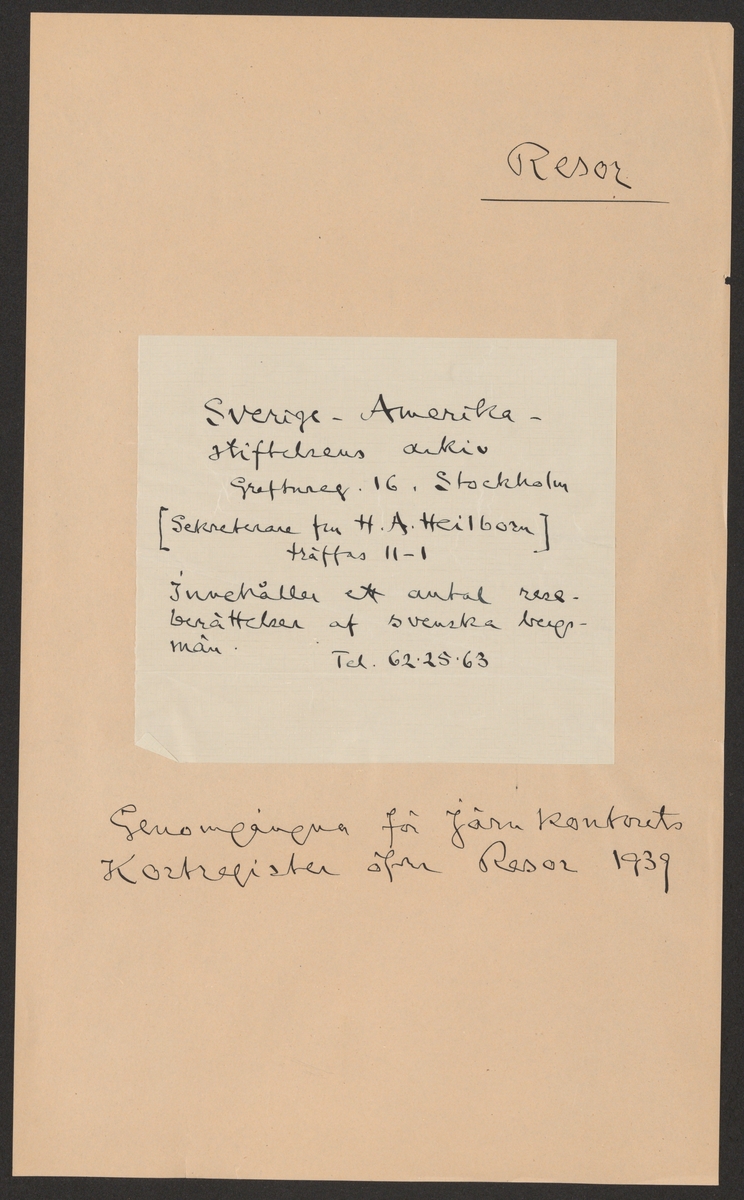 Resor
Sverige - Amerika -
stiftelsens arkiv
Greftureg. 16, Stockholm
[Sekreterare fru H. A. Heilborn]
träffas 11-1
Innehåller ett antal rese-
berättelser af svenska bergs-
män.
Tel. 62.25.63
Genomgångna för Järnkontorets
Kortregister öfver Resor 1939